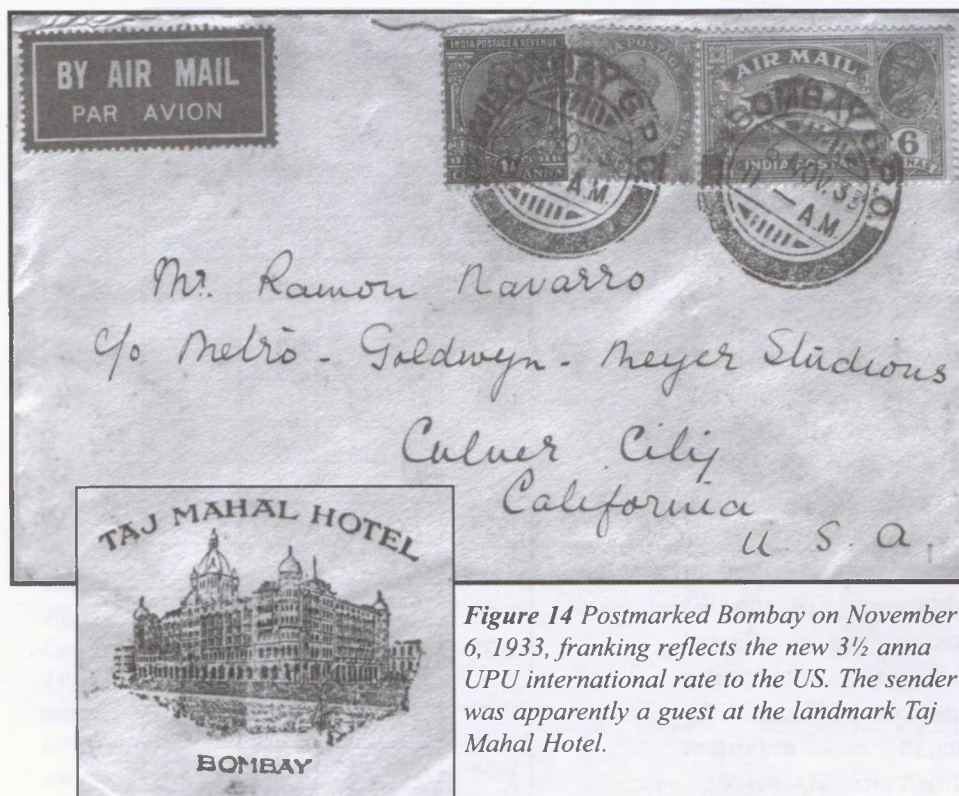 BY AIR MAIL
PAR AVION
INDIA POSTAGE & REVENUE
INDIA POSTAGE
AIR MAIL
6
INDIA POSTAGE
ANNA
BOMBAY G.P.O.
A.M.
BOMBAY G.P.O.
NOV. 33
A.M.
Mr. Ramon Navarro
c/o Metro - Goldwyn - Meyer Studious
Culver City
California
U. S. A.
TAJ MAHAL HOTEL
BOMBAY
Figure 14 Postmarked Bombay on November
6, 1933, franking reflects the new 3½ anna
UPU international rate to the US. The sender
was apparently a guest at the landmark Taj
Mahal Hotel.